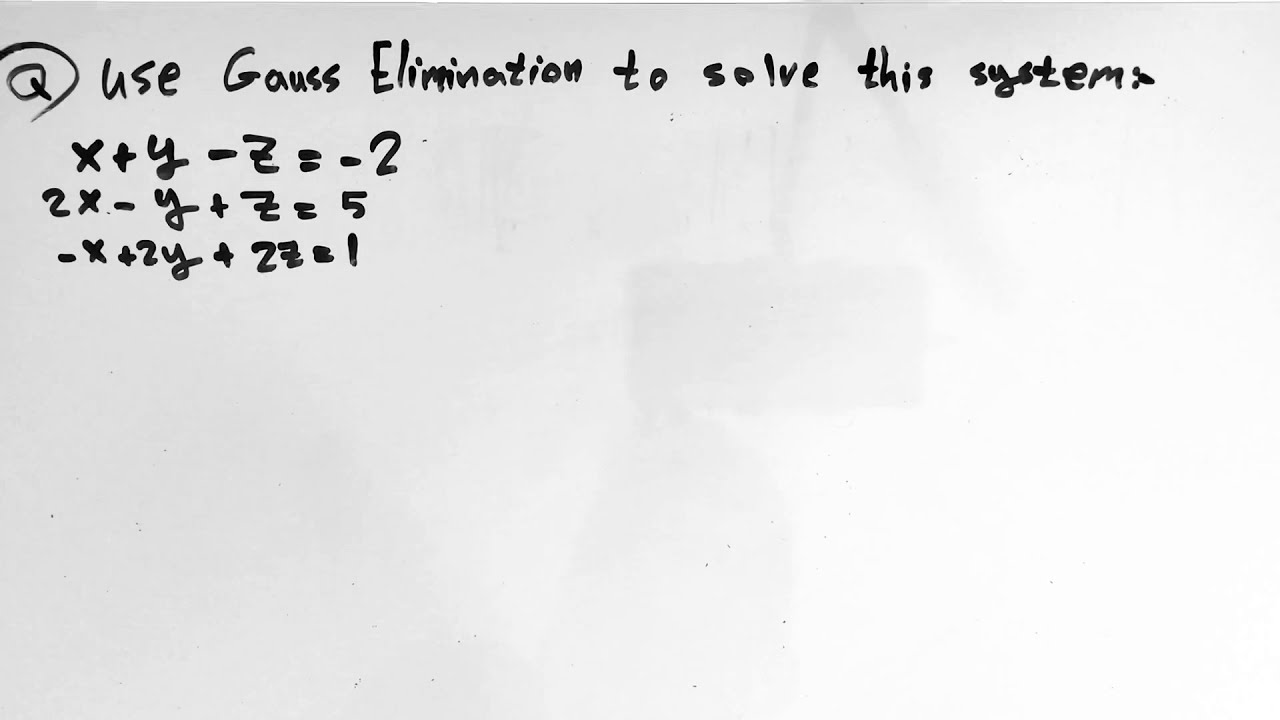 Q) Use Gauss Elimination to solve this system:
x + y - z = -2
2x - y + z = 5
-x + 2y + 2z = 1